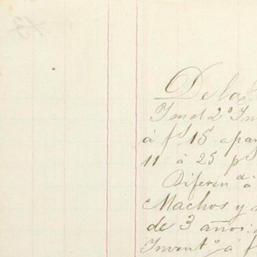 De las
Im el 2º In
á fs 15 apar
11 á 25 ps
Diferenª á
Machos y
de 3 años:
Inventº á f